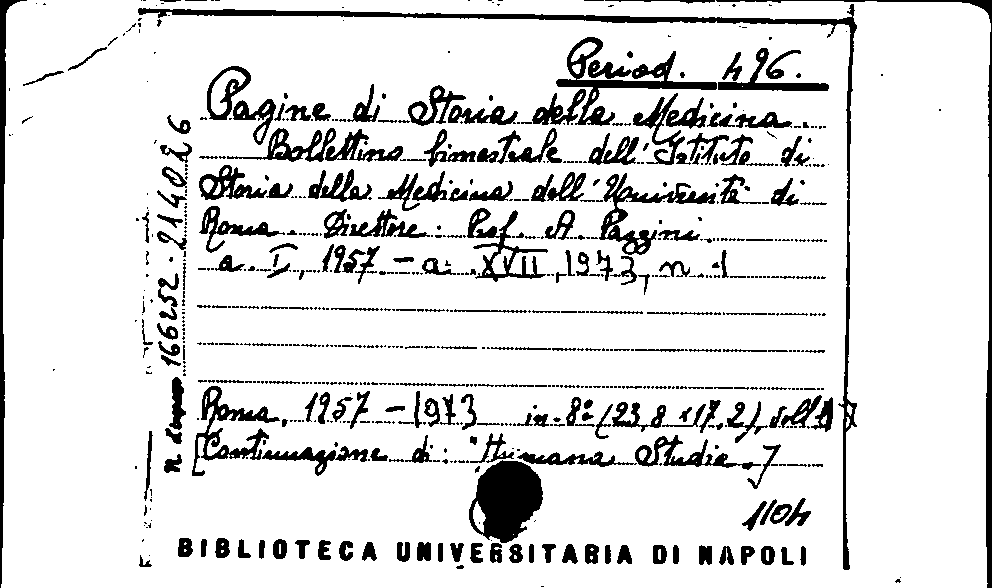 Period. 496.
Pagine di Storia della Medicina.
Bollettino bimestrale dell'Istituto di
Storia della Medicina dell'Università di
Roma. Direttore: Prof. A. Pazzini.
a. I, 1957 - a. XVII, 1973, n. 1
Roma, 1957 - 1973 in-8° (23,8 x 17,2),
[Continuazione di: "Humana Studia".]
1104
BIBLIOTECA UNIVERSITARIA DI NAPOLI
166252 - 214026